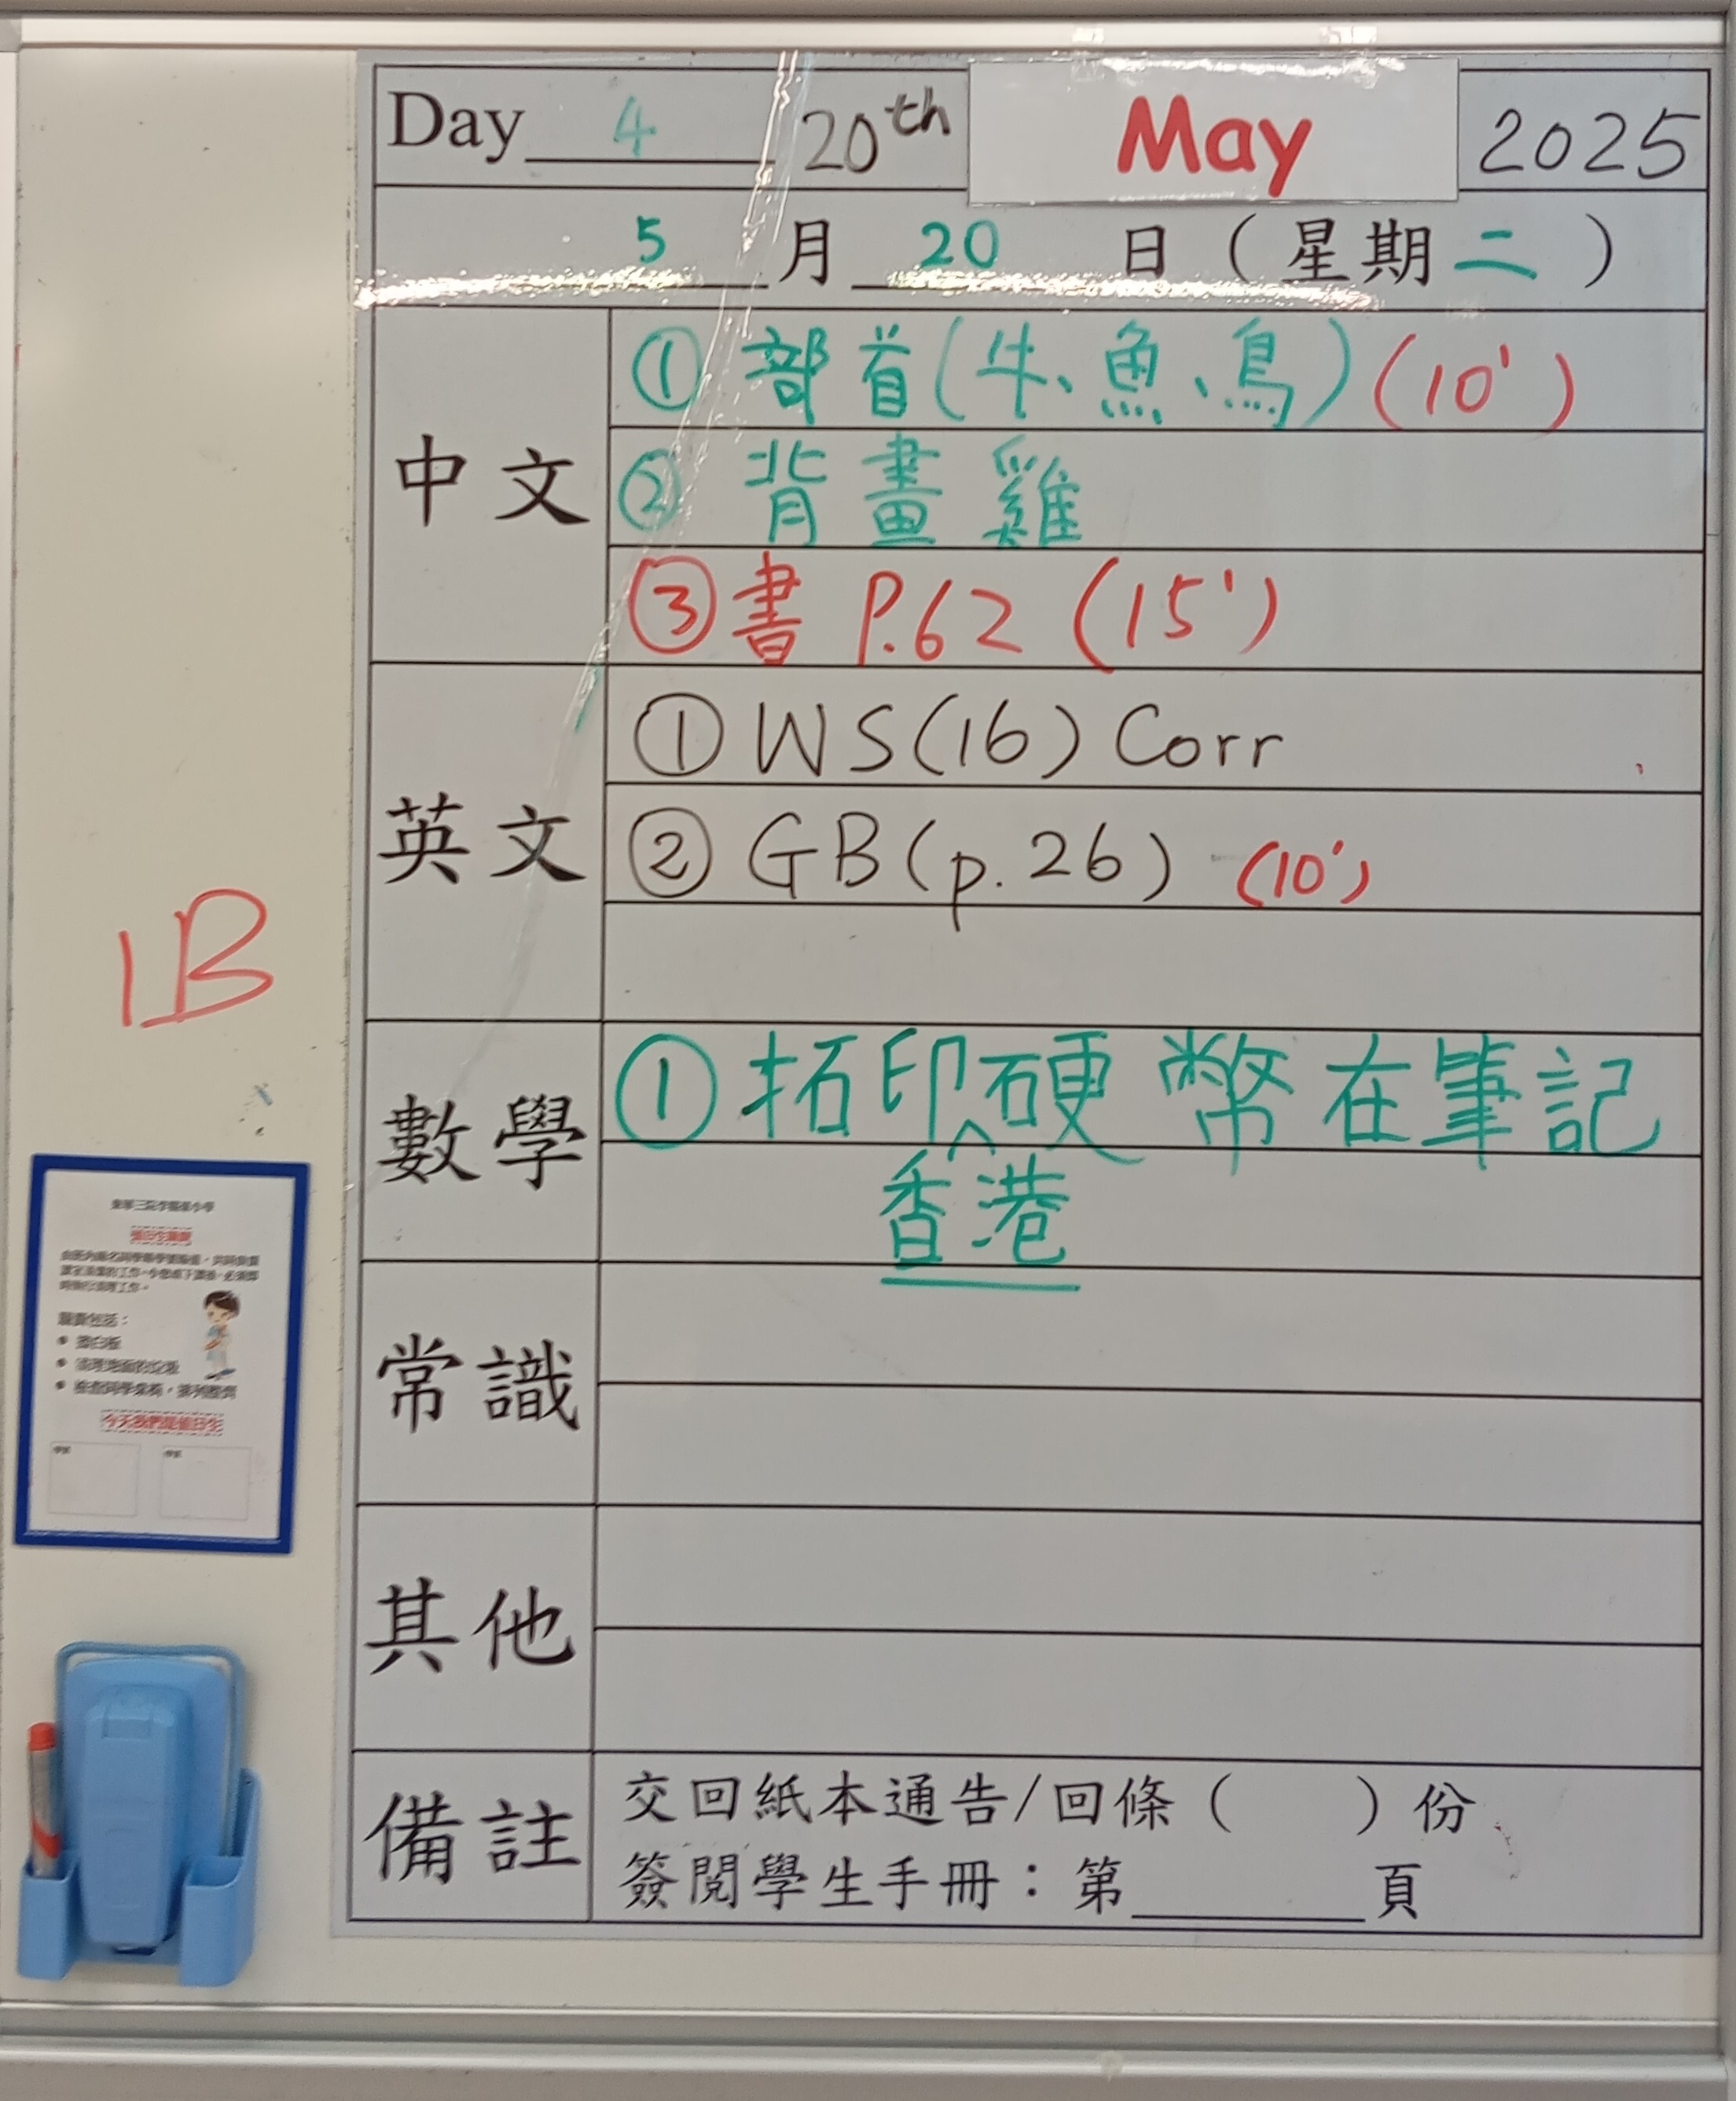 Day 4 20th May 2025
5 月 20 日 ( 星期二 )
中文
① 部首(牛、魚、鳥) (10')
② 背畫雞
③ 書 P.62 (15')
英文
① WS(16) Corr
② GB(p.26) (10')
1B
數學
① 拓印^硬幣在筆記
香港
常識
其他
備註
交回紙本通告/回條 ( ) 份
簽閱學生手冊：第______頁